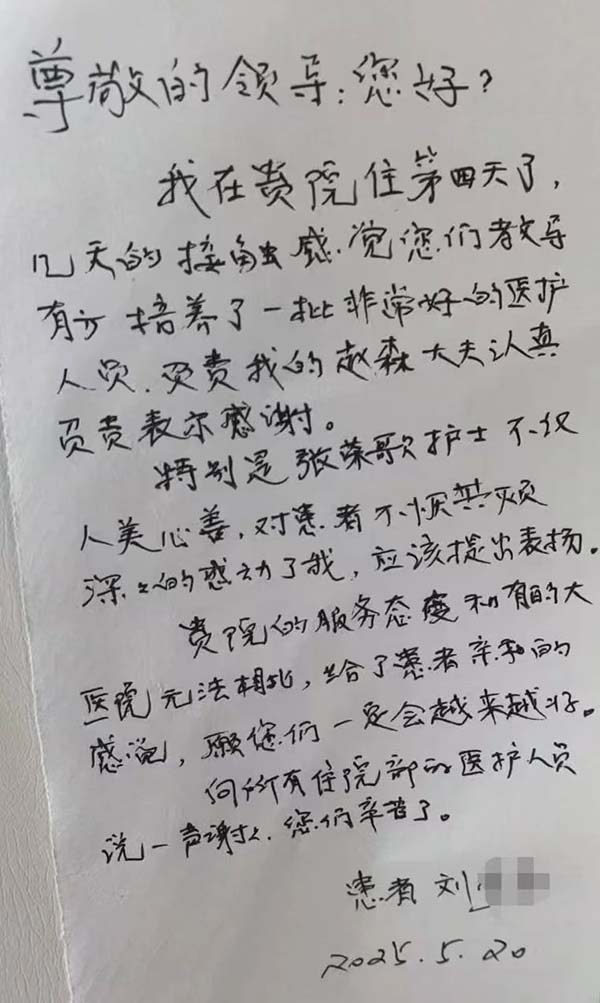 尊敬的领导：您好？
我在贵院住第四天了，
几天的接触感觉您们教导
有方培养了一批非常好的医护
人员．负责我的赵森大夫认真
负责表示感谢。
特别是张荣歌护士不仅
人美心善，对患者不惧其烦
深深的感动了我，应该提出表扬。
贵院的服务态度和有的大
医院无法相比，给了患者亲和的
感觉，愿您们一定会越来越好。
向所有住院部的医护人员
说一声谢谢．您们辛苦了。
患者 刘
2025.5.20